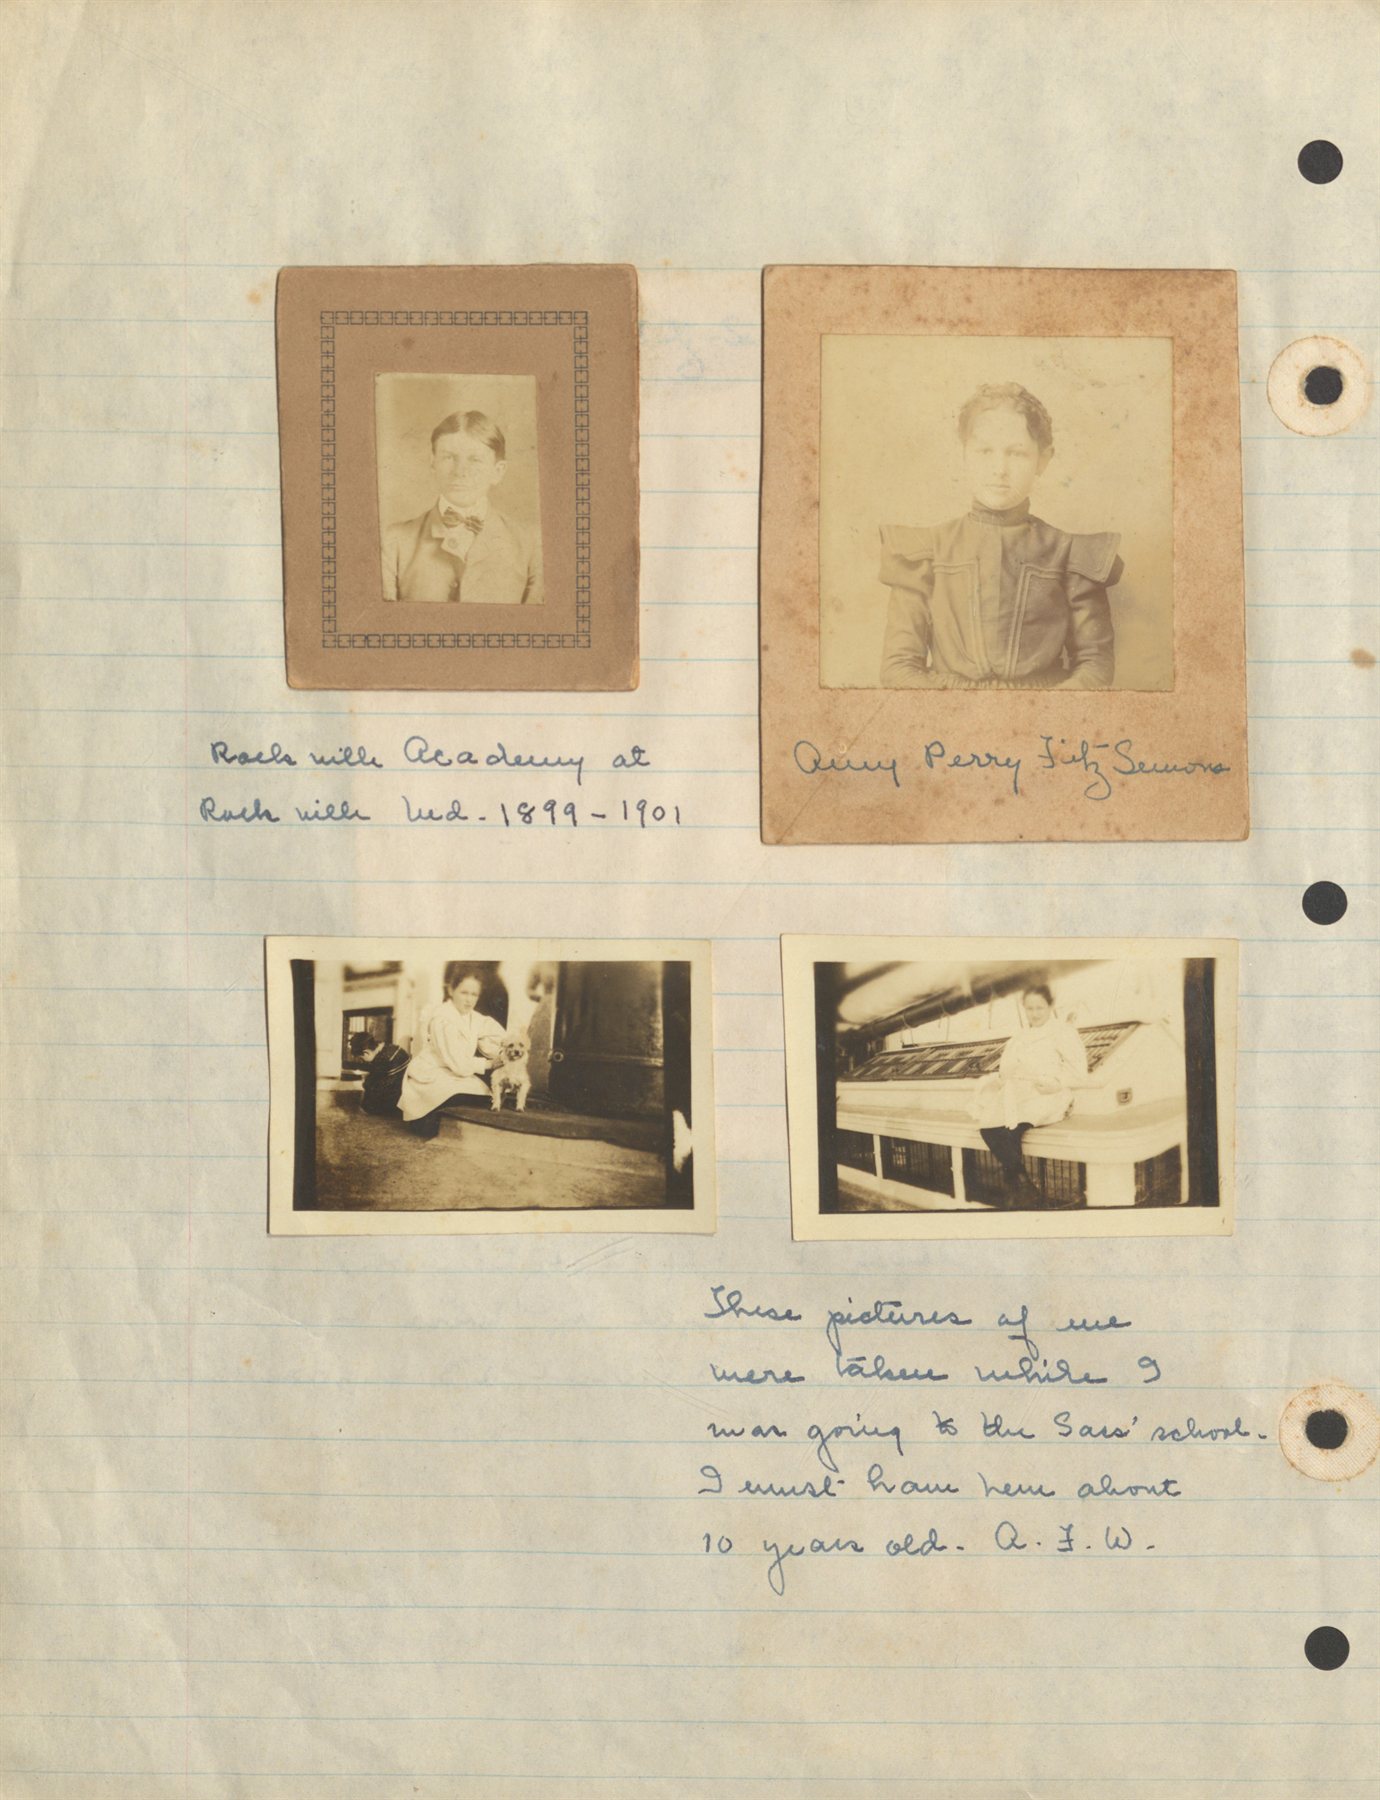 Rockville Academy at
Rockville Md. 1899 - 1901
Amy Perry FitzSimons
These pictures of me
were taken while I
was going to the Sass' school.
I must have been about
10 years old. A. F. W.